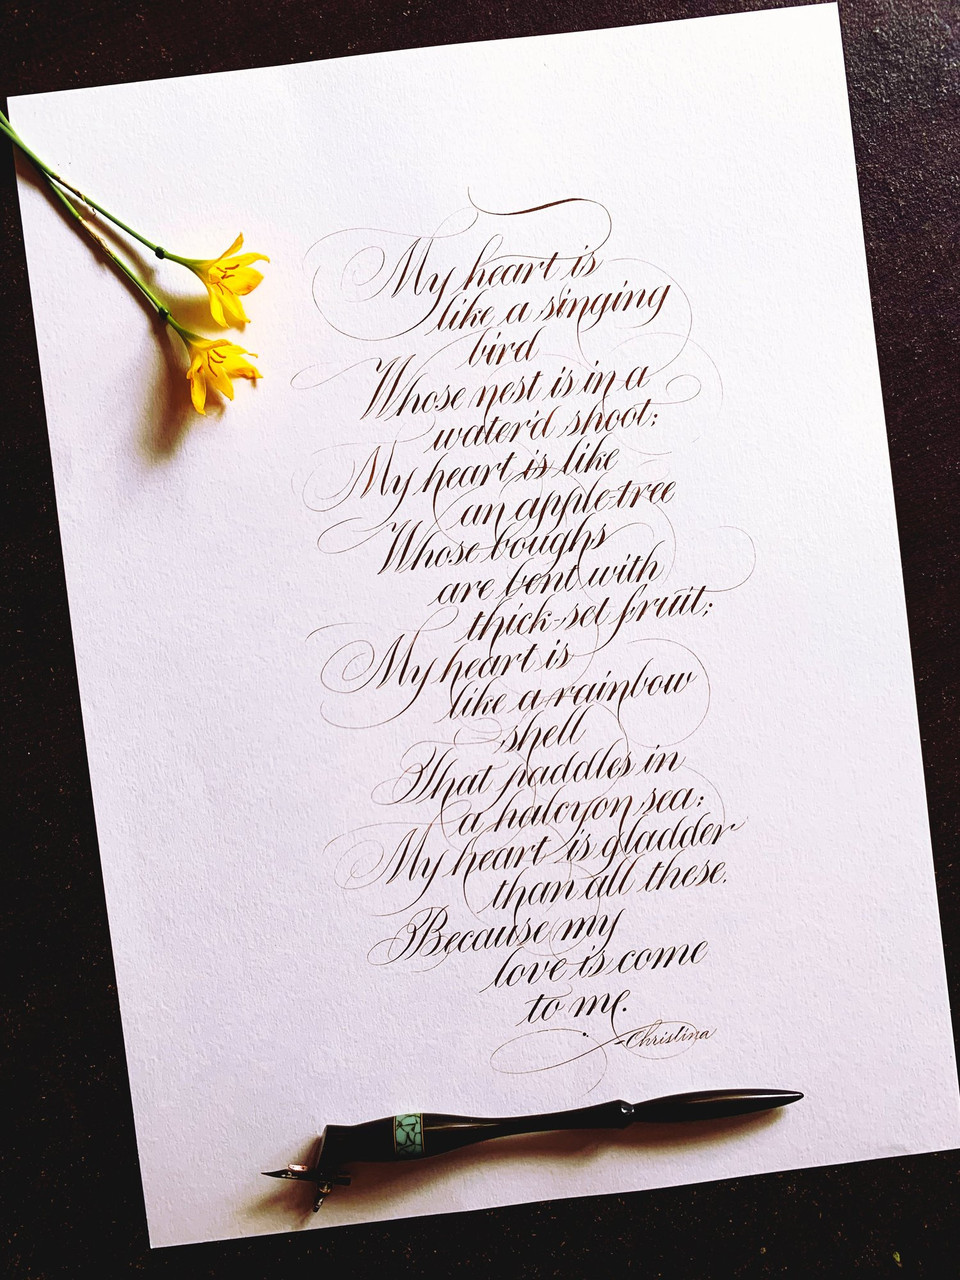 My heart is
like a singing
bird
Whose nest is in a
water'd shoot;
My heart is like
an apple-tree
Whose boughs
are bent with
thick-set fruit;
My heart is
like a rainbow
shell
That paddles in
a halcyon sea;
My heart is gladder
than all these.
Because my
love is come
to me.
-Christina